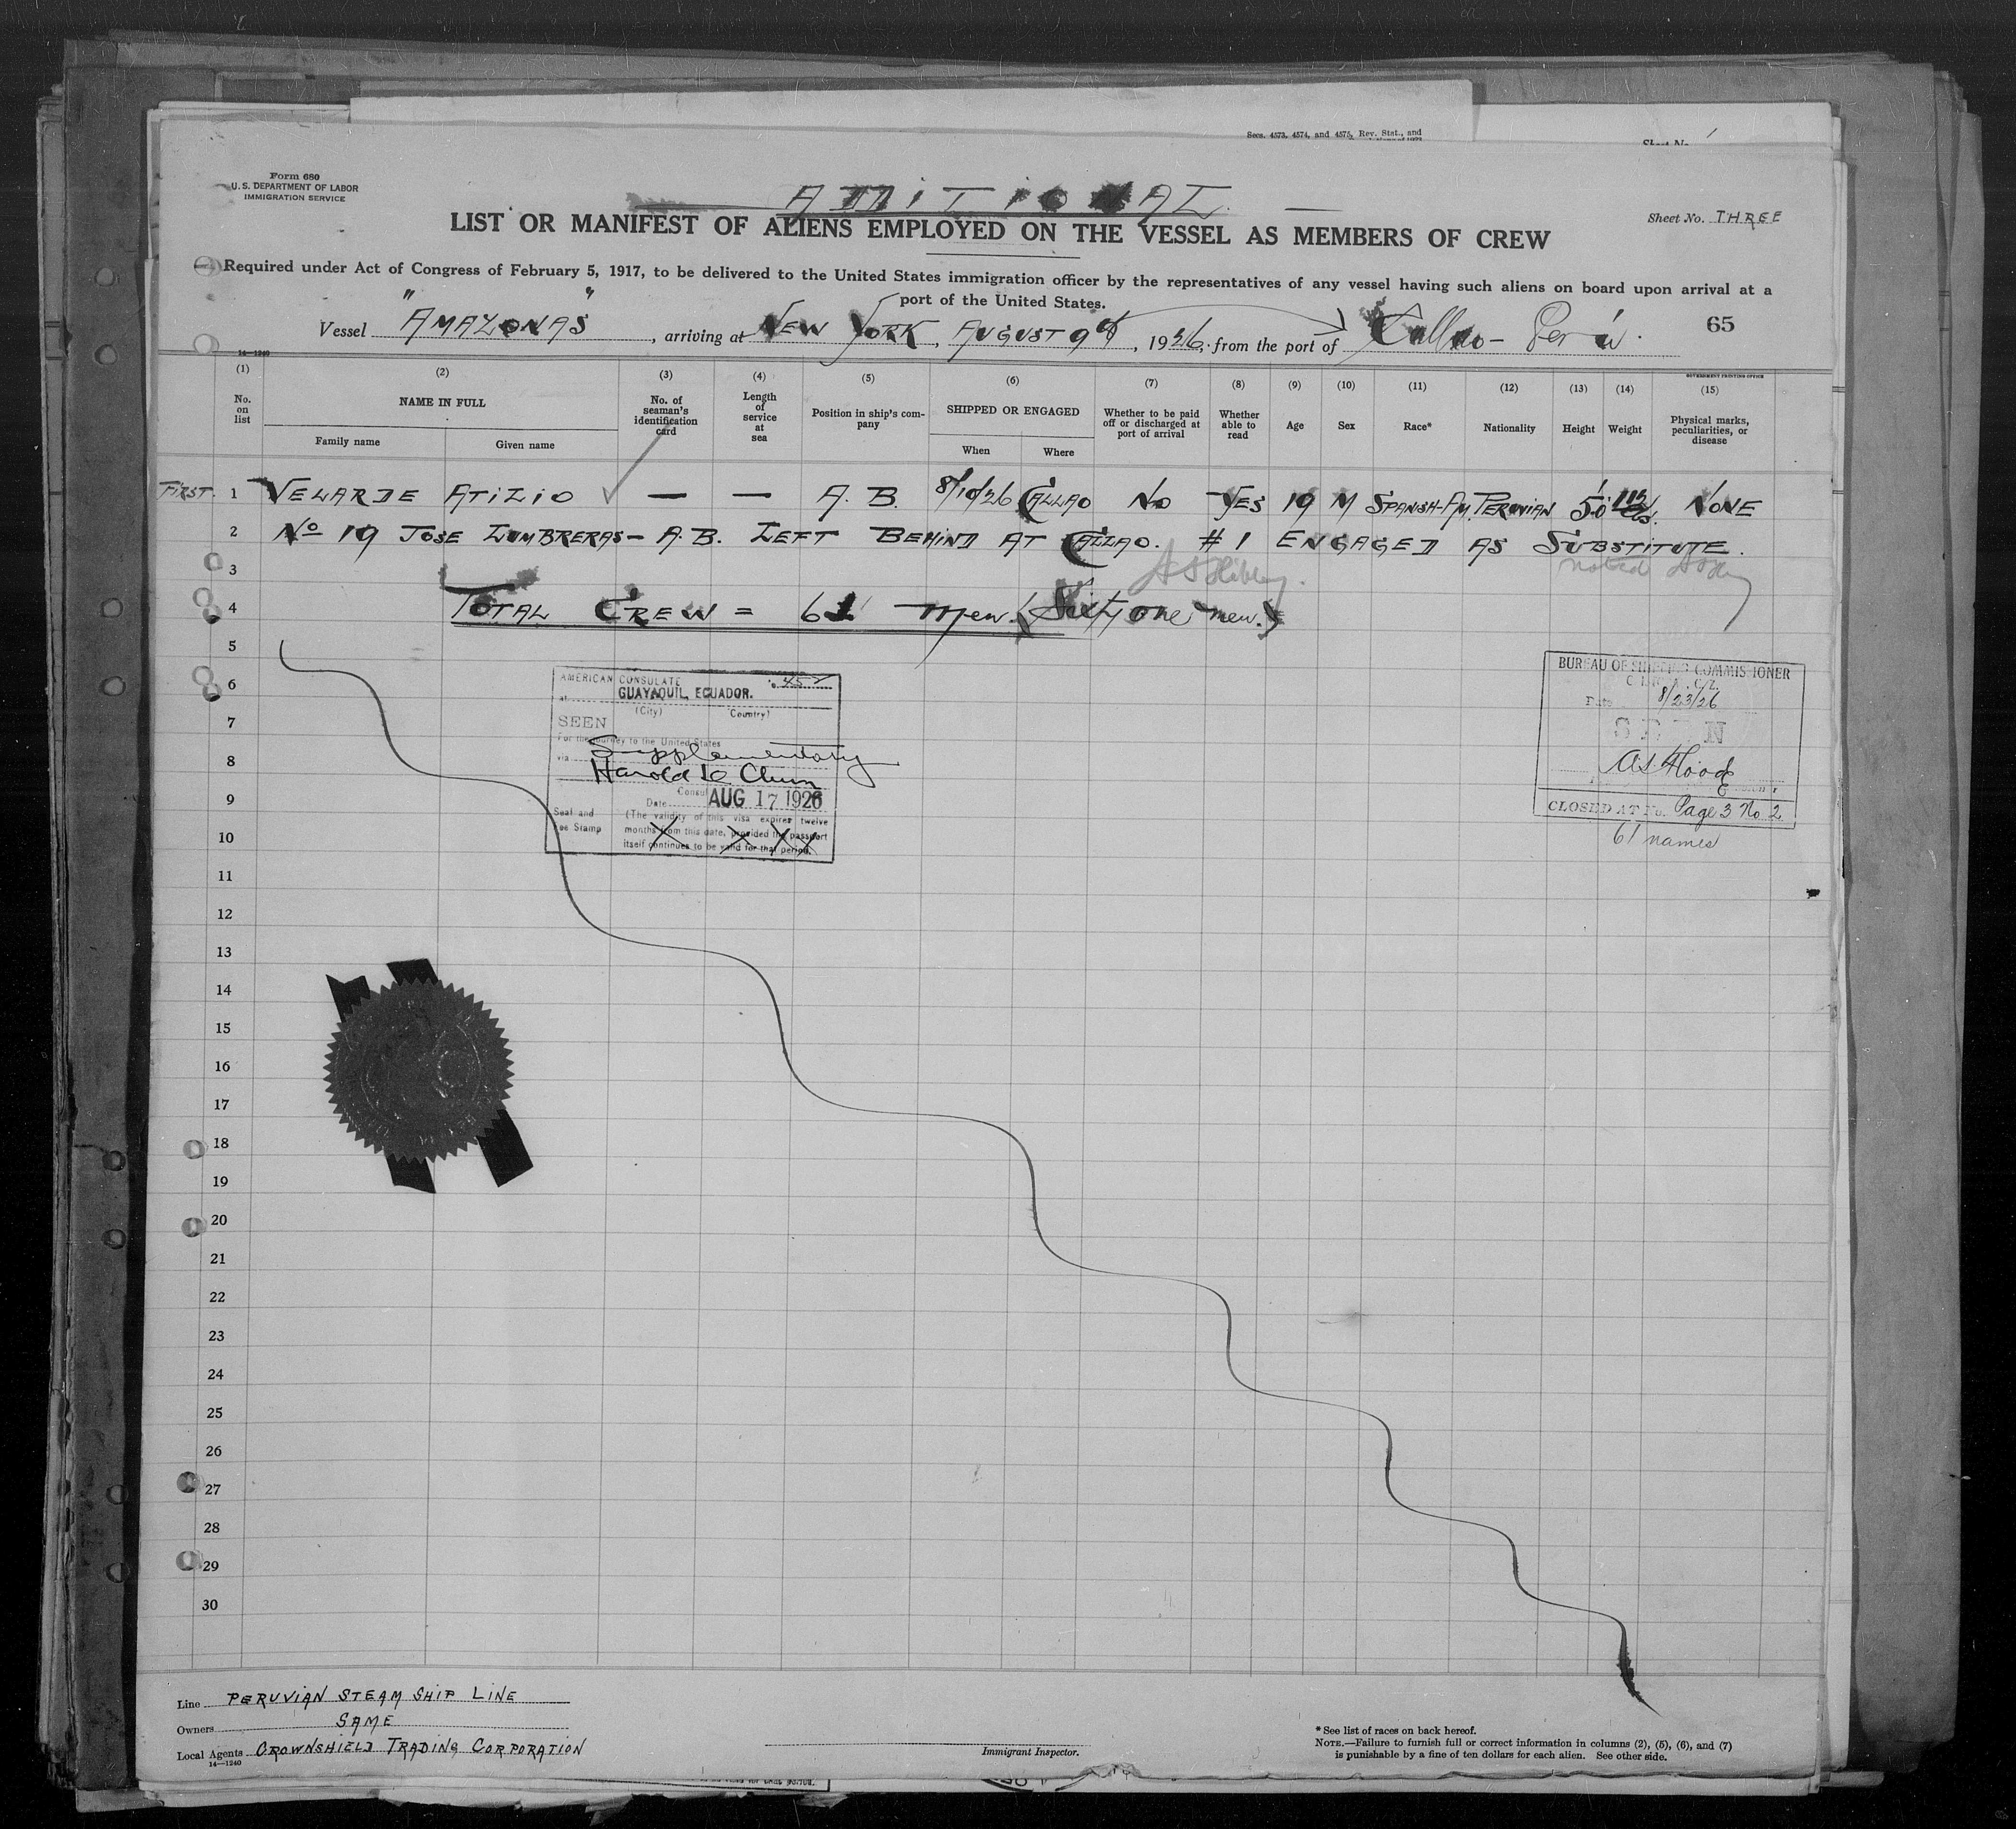 Secs. 4573, 4574, and 4575, Rev. Stat., and
Form 680
U. S. DEPARTMENT OF LABOR
IMMIGRATION SERVICE
ADITIONAL
Sheet No. THREE
LIST OR MANIFEST OF ALIENS EMPLOYED ON THE VESSEL AS MEMBERS OF CREW
Required under Act of Congress of February 5, 1917, to be delivered to the United States immigration officer by the representatives of any vessel having such aliens on board upon arrival at a
port of the United States.
Vessel "AMAZONAS", arriving at NEW YORK, AUGUST 9th, 1926, from the port of Callao - Perú.
65
14—1240
GOVERNMENT PRINTING OFFICE
(1) (2) (3) (4) (5) (6) (7) (8) (9) (10) (11) (12) (13) (14) (15)
No. on list
NAME IN FULL
Family name Given name
No. of seaman's identification card
Length of service at sea
Position in ship's company
SHIPPED OR ENGAGED
When Where
Whether to be paid off or discharged at port of arrival
Whether able to read
Age Sex Race* Nationality Height Weight
Physical marks, peculiarities, or disease
FIRST. 1 VELARDE ATILIO — — A. B. 8/10/26 CALLAO NO YES 19 M SPANISH-AM. PERUVIAN NONE
2 No 19 JOSE LUMBRERAS - A. B. LEFT BEHIND AT CALLAO. # 1 ENGAGED AS SUBSTITUTE.
3 noted
4 TOTAL CREW = 61 Men. (Sixty one men.)
5
6
7
8
9
10
11
12
13
14
15
16
17
18
19
20
21
22
23
24
25
26
27
28
29
30
AMERICAN CONSULATE
at GUAYAQUIL, ECUADOR.
(City) (Country)
SEEN
For the journey to the United States
via Supplementary
Harold
Consul
Date AUG 17 1926
Seal and Fee Stamp
(The validity of this visa expires twelve
months from this date, provided the passport
itself continues to be valid for that period.
BUREAU OF SHIPPING COMMISSIONER
Date 8/23/26
SEEN
CLOSED AT No. Page 3 No. 2
61 names
Line PERUVIAN STEAM SHIP LINE
Owners SAME
Local Agents CROWNSHIELD TRADING CORPORATION
14—1240
Immigrant Inspector.
* See list of races on back hereof.
NOTE.—Failure to furnish full or correct information in columns (2), (5), (6), and (7)
is punishable by a fine of ten dollars for each alien. See other side.